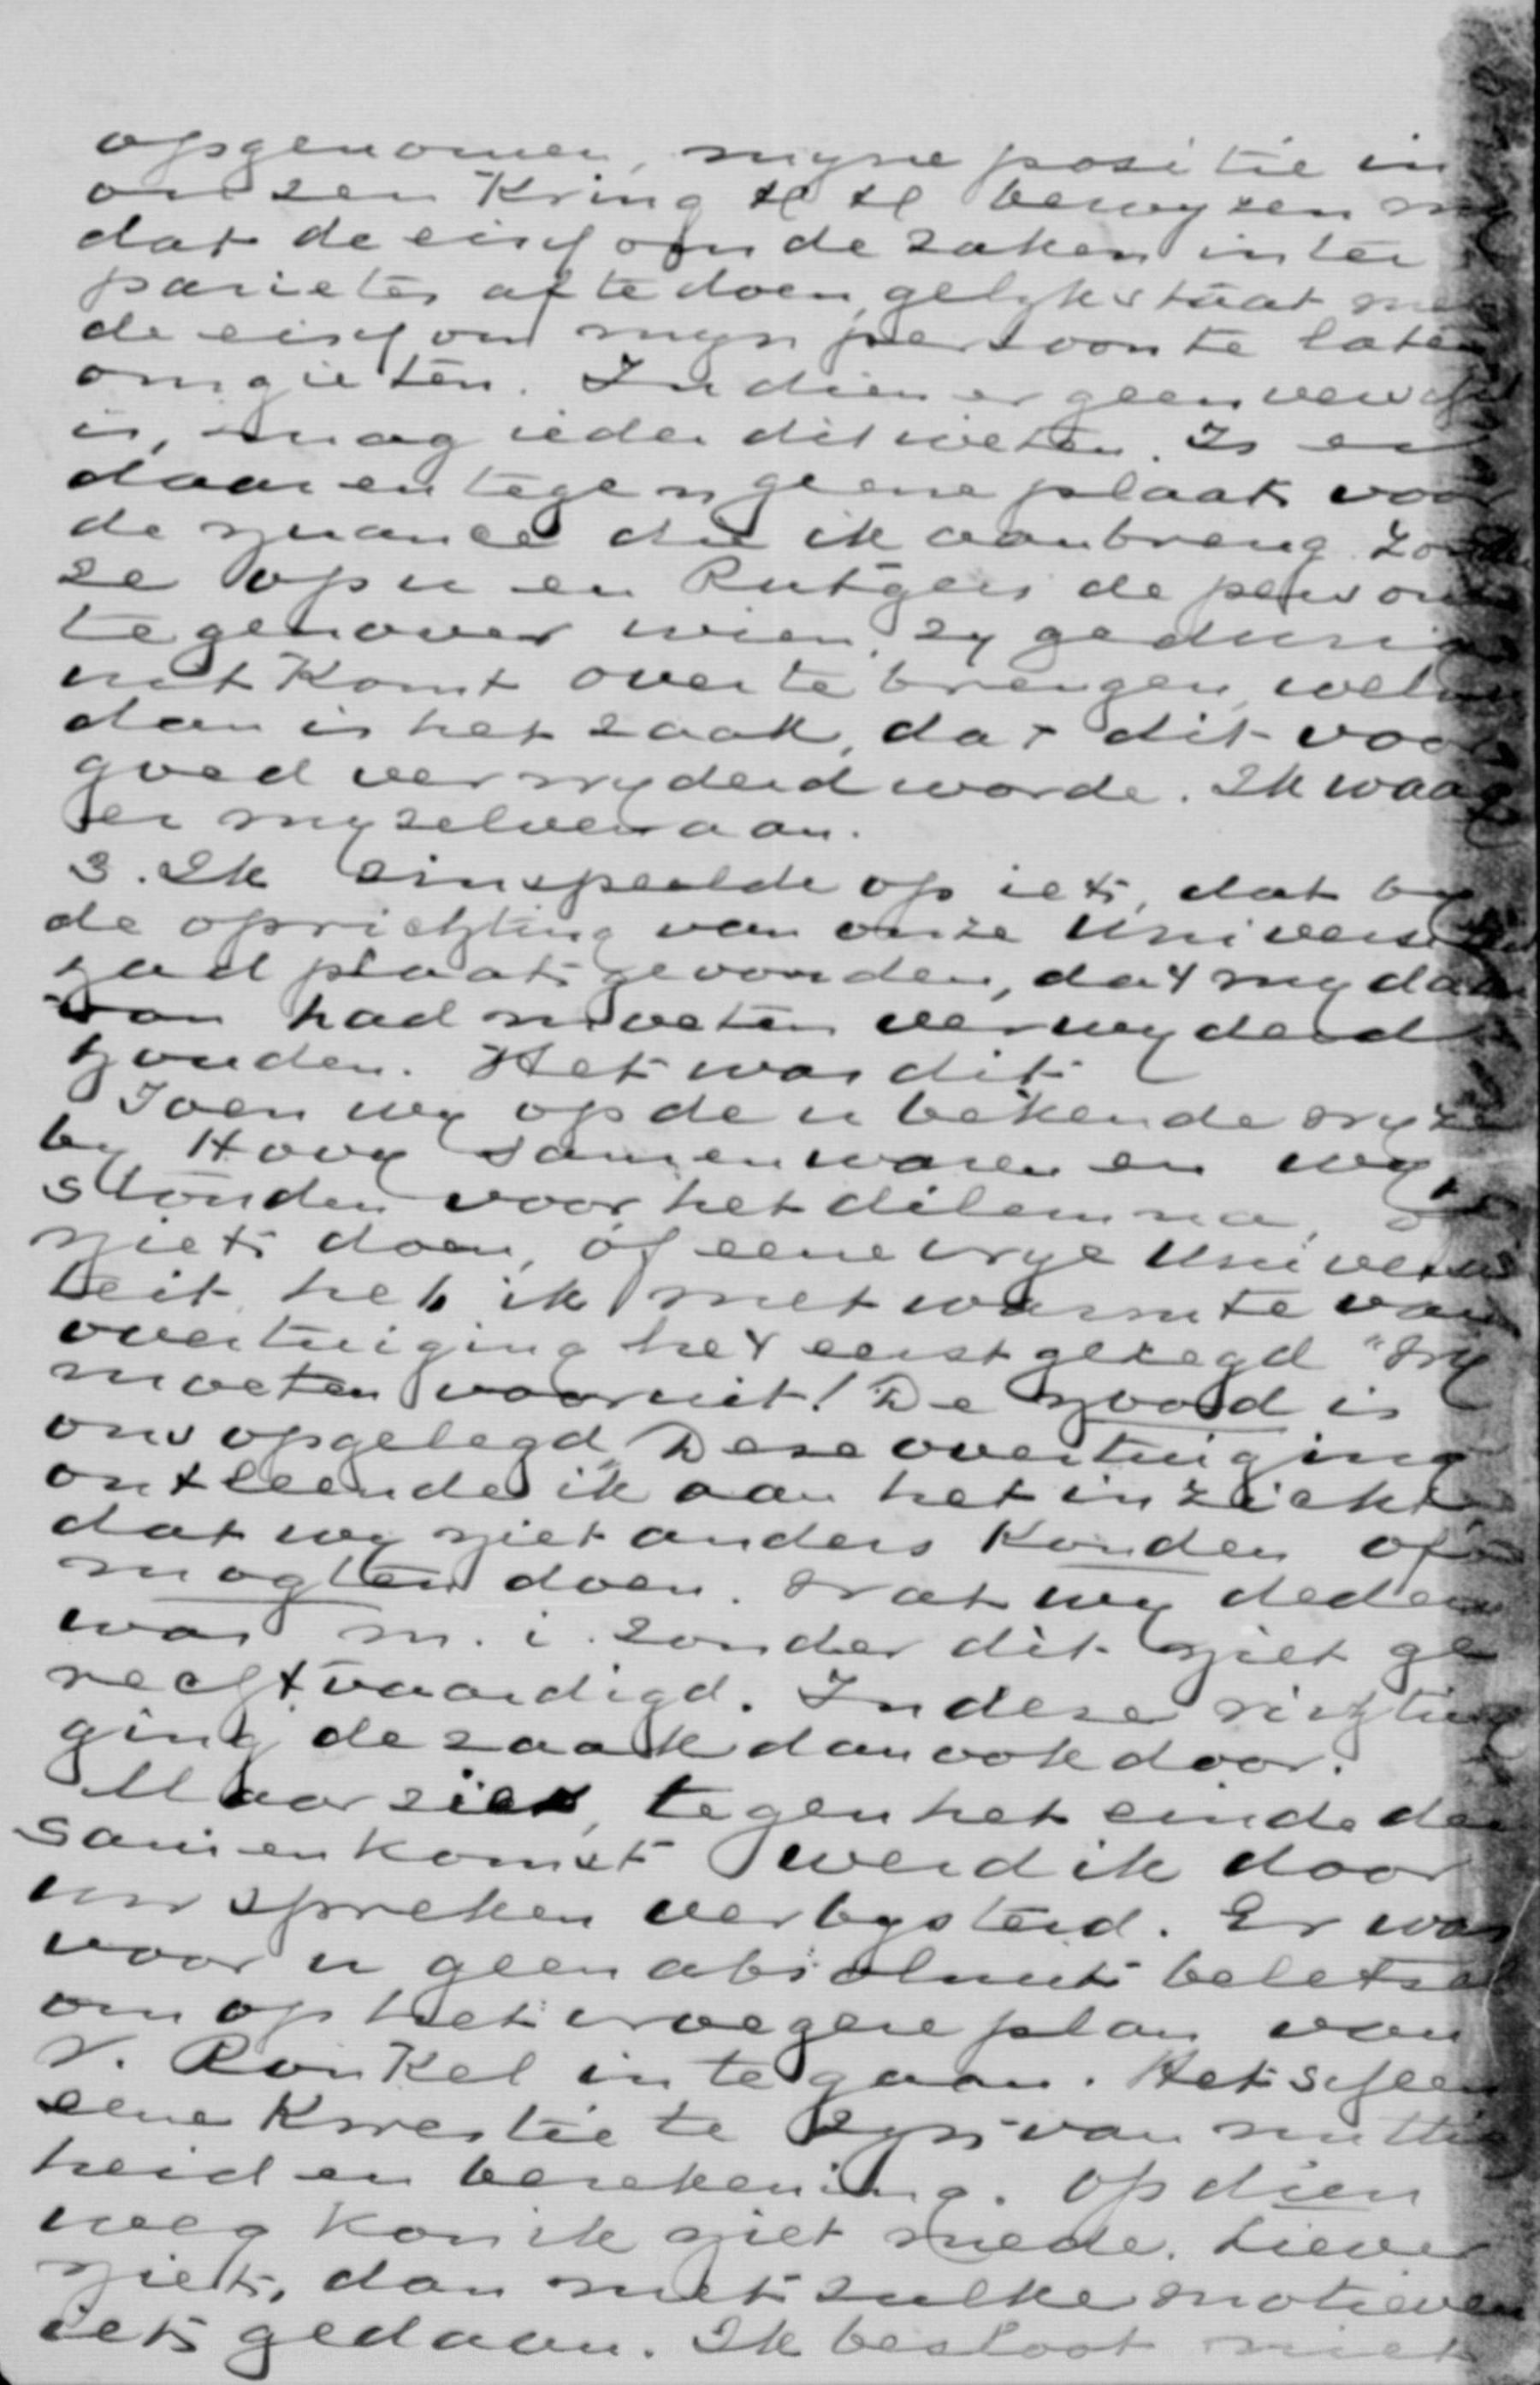 opgenomen, myne positie in
onzen Kring &c &c bewyzen my
dat de eisch om de zaken inter
parietes af te doen, gelyk staat met
de eisch om myn persoon te laten
omgieten. Indien er geen verschil
is, mag ieder dit weten. Is er
daarentegen geene plaats voor
de nuance die ik aanbreng zonder
ze op u en Rutgers de personen
tegenover wien zy gedurig
uitkomt over te brengen, welnu
dan is het zaak, dat dit voor
goed verwyderd worde. Ik waag
er myzelven aan.
3. Ik zinspeelde op iets, dat by
de oprichting van onze Universiteit
had plaats gevonden, dat my daar
van had moeten verwyderd
houden. Het was dit
Toen wy op de u bekende wyze
by Hovy samen waren en wy
stonden voor het dilemma, of
niets doen, óf eene vrye Universi
teit heb ik met warmte van
overtuiging het eerst gezegd "Wy
moeten vooruit! De nood is
ons opgelegd" Deze overtuiging
ontleende ik aan het inzicht
dat wy niet anders konden of
mogten doen. Wat wy deden
was m. i. zonder dit niet ge
rechtvaardigd. In deze richting
ging de zaak dan ook door.
Maar ziet, tegen het einde der
samenkomst werd ik door
uw spreken verbysterd. Er was
voor u geen absoluut beletsel
om op het vroegere plan van
V. Ronkel in te gaan. Het scheen
eene Kwestie te zyn van nuttig
heid en berekening. Op dien
weg kon ik niet mede. Liever
niets, dan met zulke motieven
iets gedaan. Ik besloot niet